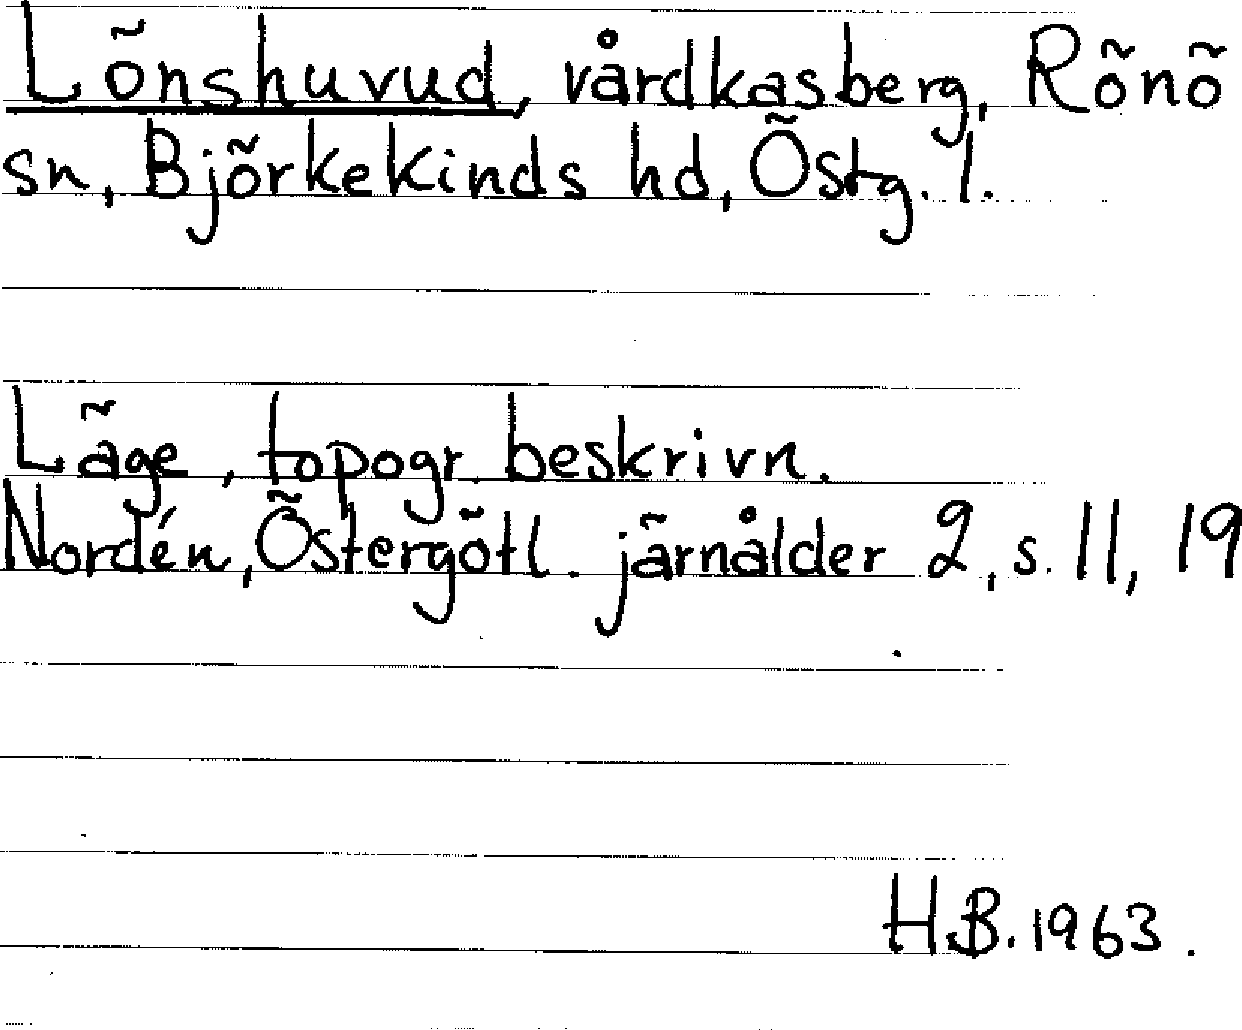 Lönshuvud, vårdkasberg, Rönö
sn, Björkekinds hd, Östg. l.
Läge, topogr. beskrivn.
Nordén, Östergötl. järnålder 2, s. 11, 19
H.B. 1963.